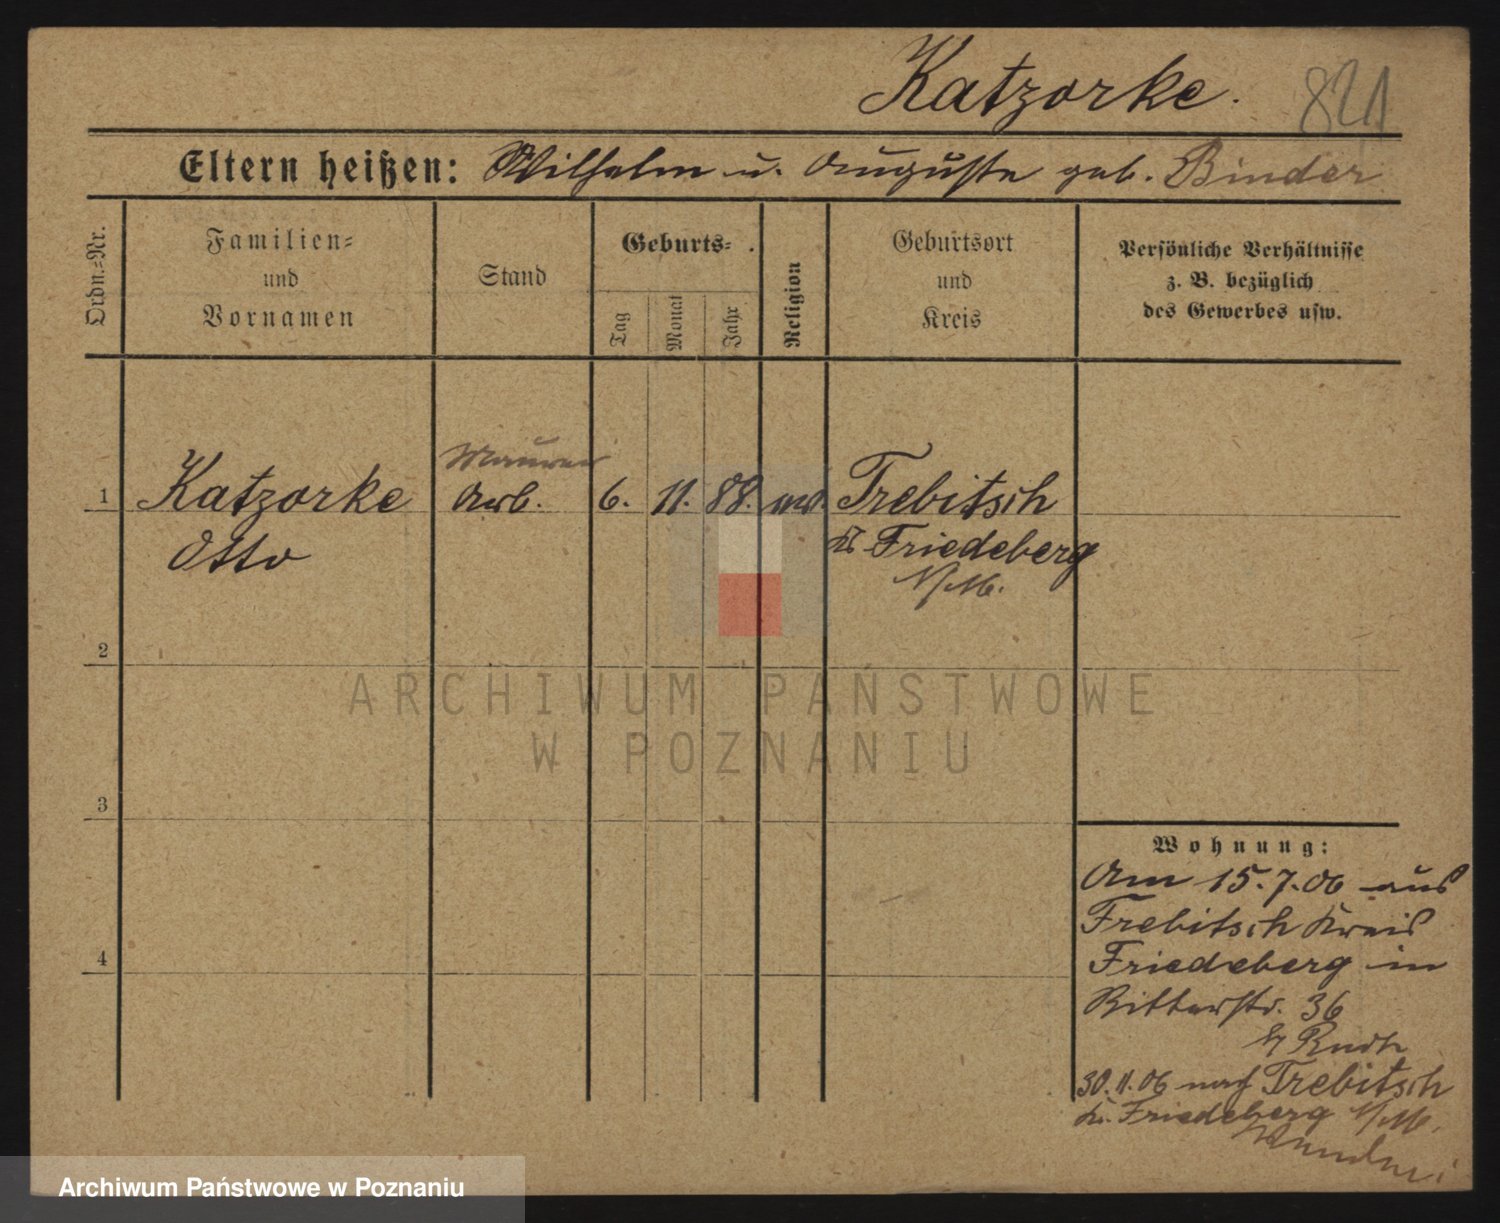 Katzorke.
821
Eltern heißen: Wilhelm u. Auguste geb. Binder
Ordn.-Nr.
Familien-
und
Vornamen
Stand
Geburts-
Tag
Monat
Jahr
Religion
Geburtsort
und
Kreis
Persönliche Verhältnisse
z. B. bezüglich
des Gewerbes usw.
Maurer
1 Katzorke Arb. 6. 11. 88. Trebitsch
Otto
Friedeberg
N/M.
2
ARCHIWUM PAŃSTWOWE
W POZNANIU
3
4
Wohnung:
Am 15.7.06 aus
Trebitsch Kreis
Friedeberg in
Ritterstr. 36
30.11.06 nach Trebitsch
Kr. Friedeberg N/M.
Archiwum Państwowe w Poznaniu